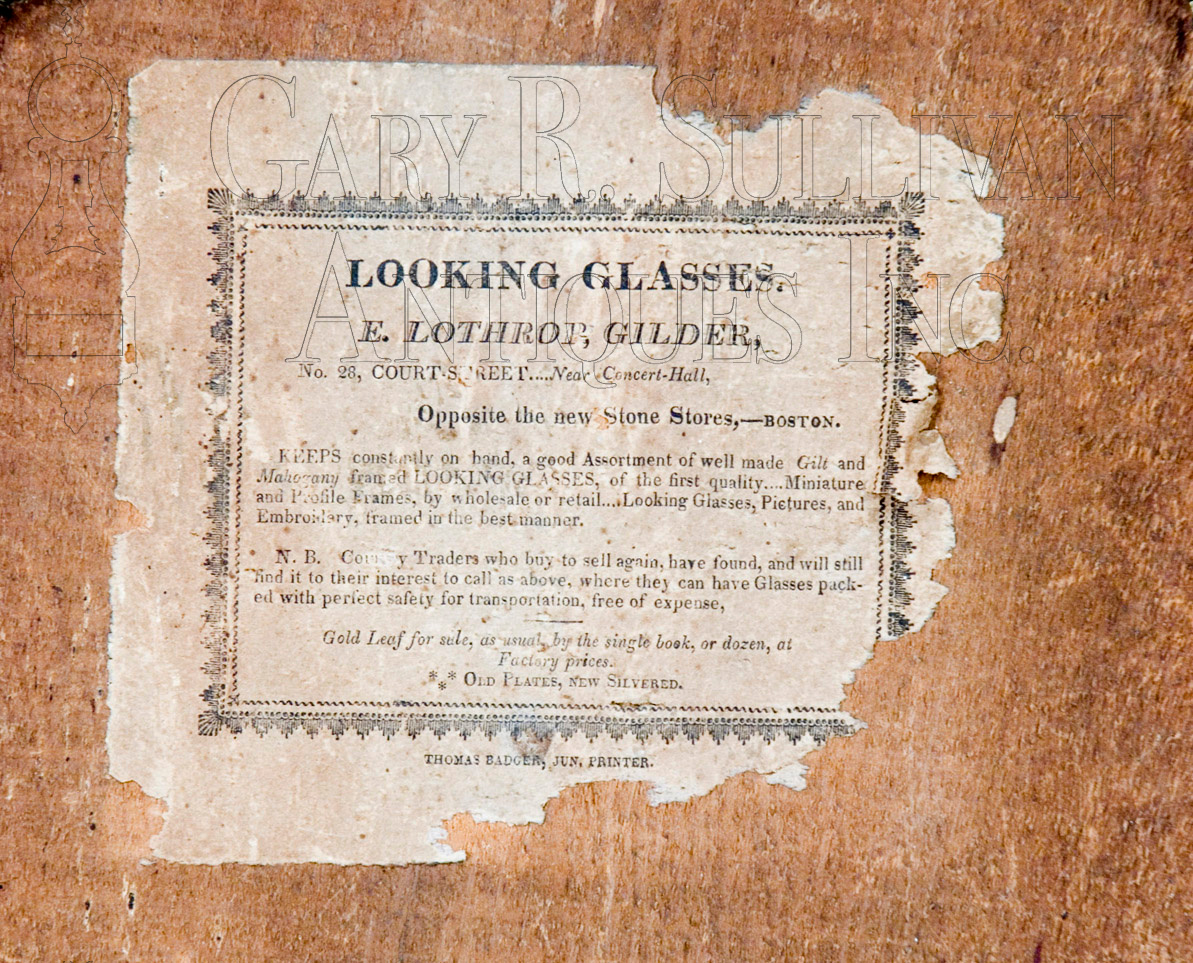 GARY R. SULLIVAN
ANTIQUES INC.
LOOKING GLASSES.
E. LOTHROP, GILDER,
No. 28, COURT-STREET....Near Concert-Hall,
Opposite the new Stone Stores,—BOSTON.
KEEPS constantly on hand, a good Assortment of well made Gilt and
Mahogany framed LOOKING GLASSES, of the first quality....Miniature
and Profile Frames, by wholesale or retail....Looking Glasses, Pictures, and
Embroidery, framed in the best manner.
N. B. Country Traders who buy to sell again, have found, and will still
find it to their interest to call as above, where they can have Glasses pack-
ed with perfect safety for transportation, free of expense,
Gold Leaf for sale, as usual, by the single book, or dozen, at
Factory prices.
*⁎* OLD PLATES, NEW SILVERED.
THOMAS BADGER, JUN. PRINTER.